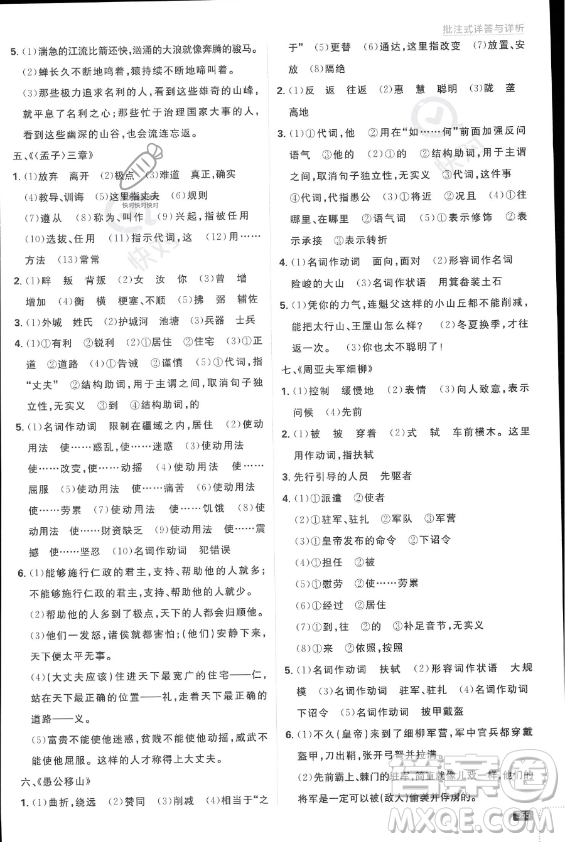 批注式详答与详析
5.(1)湍急的江流比箭还快，汹涌的大浪就像奔腾的骏马。
(2)蝉长久不断地鸣着，猿持续不断地啼叫着。
(3)那些极力追求名利的人，看到这些雄奇的山峰，
就会平息热衷于名利之心；忙于治理国家大事的人，
看到这些幽深的山谷，也会流连忘返。
五、《〈孟子〉三章》
1.(1)放弃 离开 (2)极点 (3)难道 (4)灾难
(4)教导、训诲 (5)这里指丈夫 (6)规则
(7)遵从 (8)称为、叫作 (9)兴起，指被任用
(10)选拔、任用 (11)指示代词，这 (12)……
方法 (13)常常
2.(1)畔 叛 背叛 (2)女 汝 你 (3)曾 增
增加 (4)衡 横 梗塞、不顺 (5)拂 弼 辅佐
3.(1)外城 姓氏 (2)护城河 池塘 (3)兵器 士兵
4.(1)①有利 ②锐利 (2)①居住 ②住宅 (3)①正
道 ②道路 (4)①告诫 ②谨慎 (5)①代词，指
“丈夫” ②结构助词，用于主谓之间，取消句子独
立性，无实义 ③的
5.(1)名词作动词 限制在疆域之内，居住 (2)使动
用法 使……惑乱，使……迷惑 (3)使动用法
使……改变，使……动摇 (4)使动用法 使……
屈服 (5)使动用法 使……痛苦 (6)使动用法
使……劳累 (7)使动用法 使……饥饿 (8)使动
用法 使……财资缺乏 (9)使动用法 使……震
撼 使……坚忍 (10)名词作动词 犯错误
6.(1)能够施行仁政的君主，支持、帮助他的人就多；
不能够施行仁政的君主，支持、帮助他的人就少。
(2)帮助他的人多到了极点，天下的人都会归顺他。
(3)他们一发怒，诸侯就会害怕；(他们)安静下来，
天下便太平无事。
(4)(大丈夫应该)住进天下最宽广的住宅——仁，
站在天下最正确的位置——礼，走着天下最正确的
道路——义。
(5)富贵不能使他迷惑，贫贱不能使他动摇，威武不
能使他屈服，这才叫作大丈夫。
六、《愚公移山》
1.(1)曲折，绕远 (2)赞同 (3)削减 (4)相当于“之
于” (5)更替 (6)交通，这里指改变 (7)安放
(8)隔绝
2.(1)反 返 往返 (2)惠 慧 聪明 (3)陇 垄
高地
3.(1)①代词，他 ②用在“如……何”前面加强反问
语气 ③代词，其中的 (2)①的 ②结构助词，用
于主谓之间，取消句子独立性，无实义 ③代词，这件事
④代词，代愚公 (3)①将近 ②况且 (4)①表
示反问 ②语气词 (5)①表示修饰 ②表
示承接 ③表示转折
4.(1)名词作动词 面向，面对 (2)形容词作名词
险峻的大山 (3)名词作状语 用箕畚装土石
5.(1)凭你的力气，连魁父这样的小山丘都不能削减，
能把太行山、王屋山怎么样？
(2)你太不聪明了！
七、《周亚夫军细柳》
1.(1)控制 缓慢地 (2)表情 (3)向人致意，表示
问候 (4)先前
2.(1)被 披 穿着 (2)式 轼 车前横木。这里用作
动词，指扶轼
3.先行引导的人员 先驱者
4.(1)①派遣 ②使者
(2)①驻军、驻扎 ②军队 ③军营
(3)①皇帝发布的命令 ②下诏令
(4)①担任 ②被
(5)①慰劳 ②使……劳累
(6)①经过 ②居住
(7)①于是，就 ②在 ③补足音节，无实义
(8)①来 ②将要
5.(1)名词作动词 扶轼 (2)形容词作状语 大规
模 (3)名词作动词 驻扎 (4)名词作动词
下诏令 (5)名词作动词 披甲戴盔
6.(1)不久(皇帝)来到了细柳军营，军中官兵都穿戴
盔甲，刀出鞘，张开弓弩，并且拉满。
(2)先前霸上、棘门的驻军，简直就像儿戏一样，他们的
将军是可以被(敌人)偷袭并俘虏的。